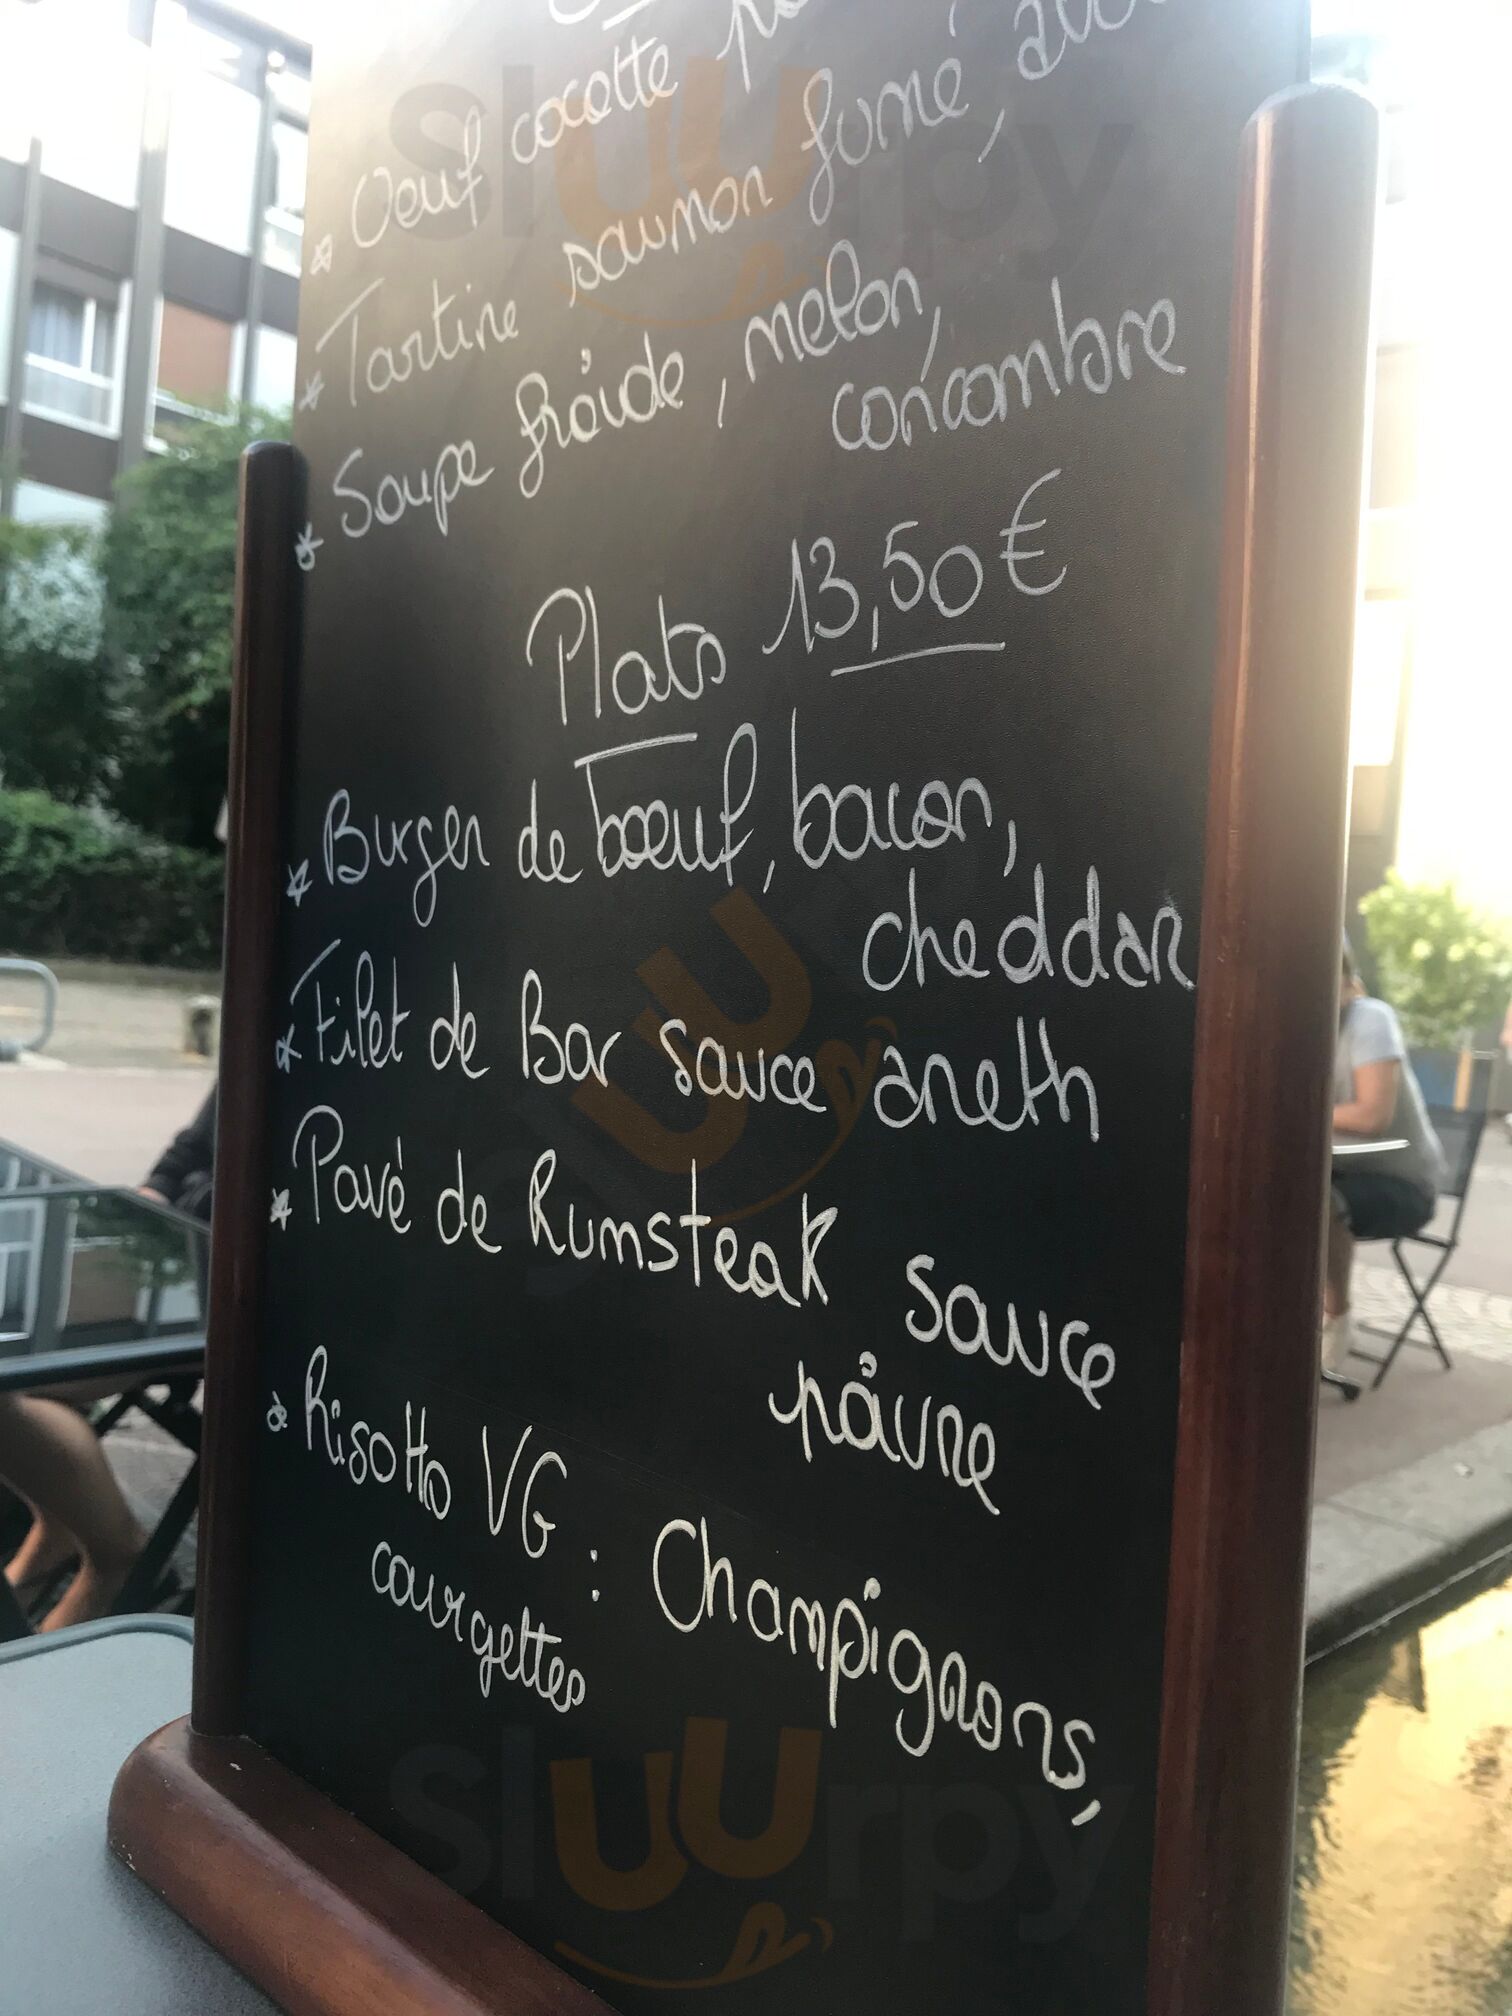 * Oeuf cocotte
* Tartine saumon fumé,
* Soupe froide, melon,
concombre
Plats 13,50€
* Burger de boeuf, bacon,
cheddar
* Filet de Bar sauce aneth
* Pavé de Rumsteak sauce
poivre
* Risotto VG : Champignons,
courgettes
Sluurpy
Sluurpy
Sluurpy